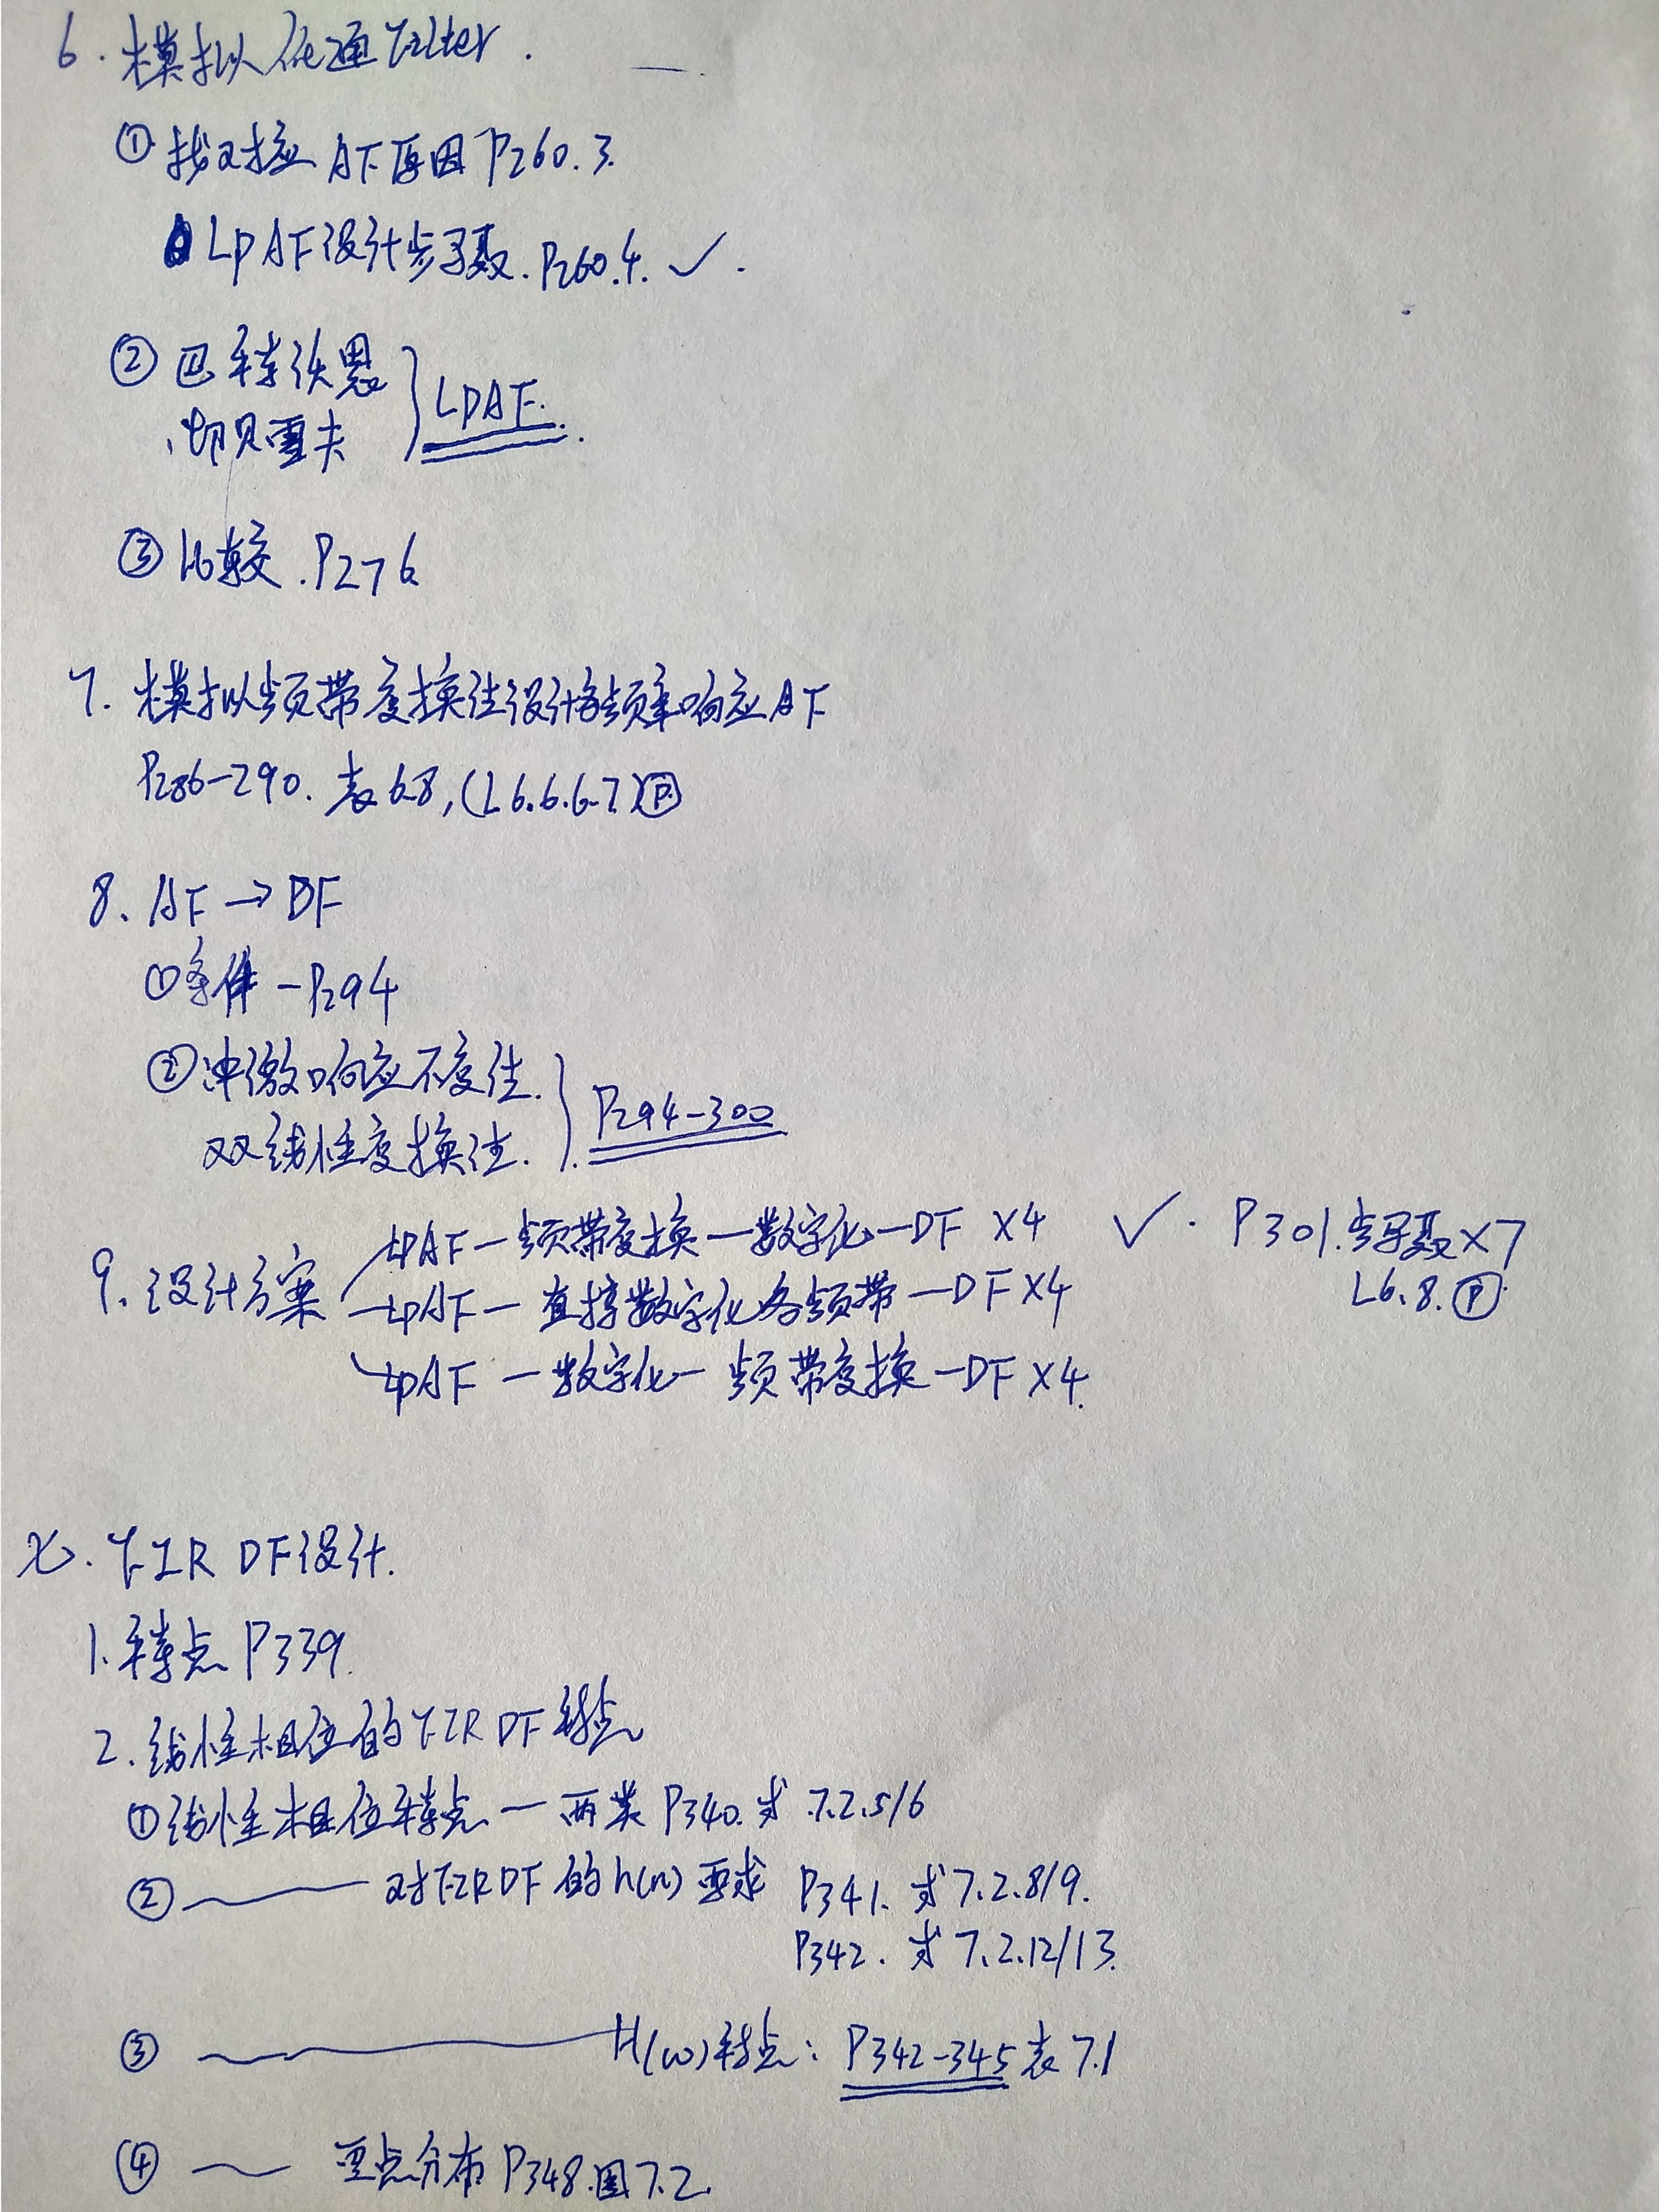 6. 模拟低通Filter.
① 找对应AF原因 P260.3.
LPAF设计步骤. P260.4. ✓.
② 巴特沃思
切贝雪夫 } LPAF.
③ 比较. P276
7. 模拟频带变换法设计各频率响应AF
P286-290. 表6.8, (L6.6.6.7) Ⓟ
8. AF → DF
① 条件 - P294
② 冲激响应不变法.
双线性变换法. } P294-300
9. 设计方案
LPAF — 频带变换 — 数字化 — DF ×4 ✓. P301. 步骤×7
LPAF — 直接数字化各频带 — DF ×4 L6.8. Ⓟ
LPAF — 数字化 — 频带变换 — DF ×4.
七. FIR DF设计.
1. 特点 P339.
2. 线性相位的FIR DF特点
① 线性相位特点 — 两类 P340. 式 7.2.5/6
② —— 对FIR DF的h(n)要求 P341. 式7.2.8/9.
P342. 式7.2.12/13.
③ —— H(ω)特点: P342-345 表7.1
④ —— 零点分布 P348. 图7.2.